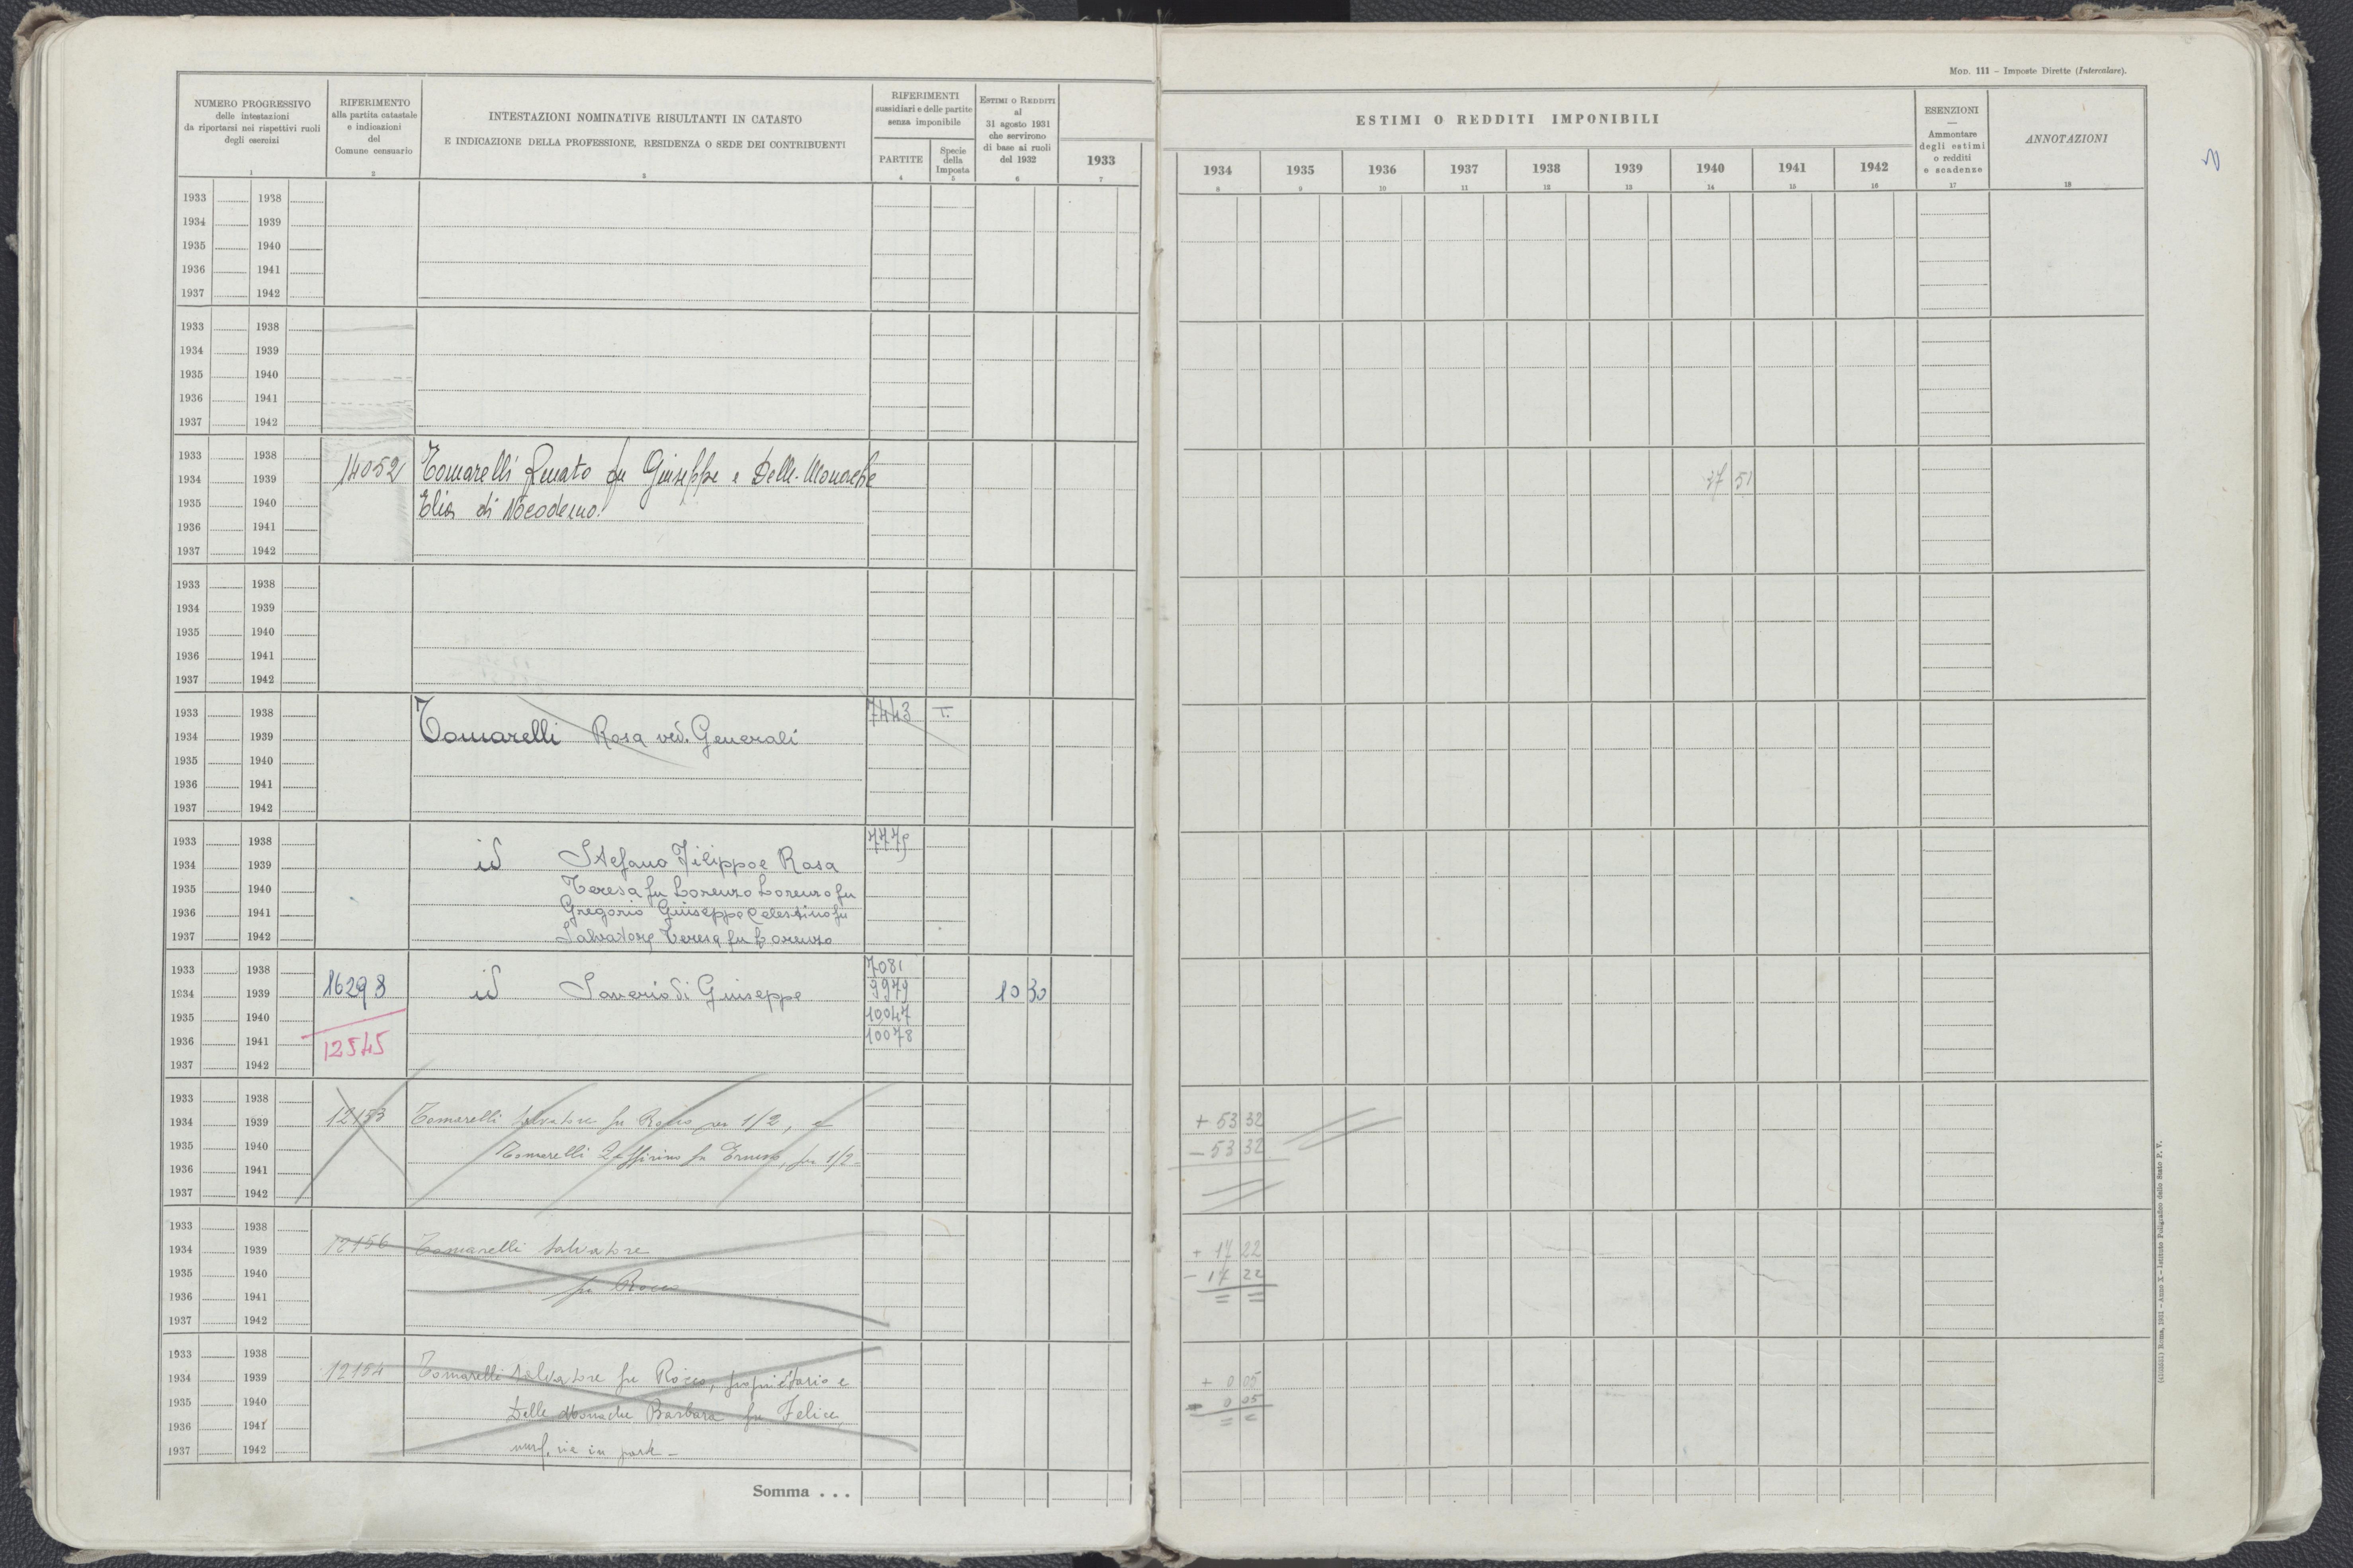 Mod. 111 – Imposte Dirette (Intercalare).
NUMERO PROGRESSIVO
delle intestazioni
da riportarsi nei rispettivi ruoli
degli esercizi
1
RIFERIMENTO
alla partita catastale
e indicazioni
del
Comune censuario
2
INTESTAZIONI NOMINATIVE RISULTANTI IN CATASTO
E INDICAZIONE DELLA PROFESSIONE, RESIDENZA O SEDE DEI CONTRIBUENTI
3
RIFERIMENTI
sussidiari e delle partite
senza imponibile
PARTITE
4
Specie
della
Imposta
5
Estimi o Redditi
al
31 agosto 1931
che servirono
di base ai ruoli
del 1932
6
1933
7
ESTIMI O REDDITI IMPONIBILI
1934 1935 1936 1937 1938 1939 1940 1941 1942
8 9 10 11 12 13 14 15 16
ESENZIONI
—
Ammontare
degli estimi
o redditi
e scadenze
17
ANNOTAZIONI
18
1933 1938
1934 1939
1935 1940
1936 1941
1937 1942
1933 1938
1934 1939
1935 1940
1936 1941
1937 1942
1933 1938
1934 1939
1935 1940
1936 1941
1937 1942
14052 Tomarelli Renato fu Giuseppe e Delle-Monache 37 51
Elia di Nicodemo.
1933 1938
1934 1939
1935 1940
1936 1941
1937 1942
1933 1938
1934 1939
1935 1940
1936 1941
1937 1942
7443 T.
Tomarelli Rosa ved. Generali
1933 1938
1934 1939
1935 1940
1936 1941
1937 1942
7775
id Stefano Filippo e Rosa
Teresa fu Lorenzo Lorenzo fu
Gregorio Giuseppe Celestino fu
Salvatore Teresa fu Lorenzo
1933 1938
1934 1939
1935 1940
1936 1941
1937 1942
7081
16298 id Saverio di Giuseppe 9979 10 30
10047
12545 10078
1933 1938
1934 1939
1935 1940
1936 1941
1937 1942
12153 Tomarelli Salvatore fu Rocco per 1/2, e + 53 32
Tomarelli Zeffirino fu Ernesto, per 1/2 – 53 32
1933 1938
1934 1939
1935 1940
1936 1941
1937 1942
12156 Tomarelli Salvatore + 17 22
fu Rocco – 17 22
= =
1933 1938
1934 1939
1935 1940
1936 1941
1937 1942
12154 Tomarelli Salvatore fu Rocco, proprietario e + 0 05
Delle Monache Barbara fu Felice, – 0 05
usuf.ria in parte – = =
Somma . . .